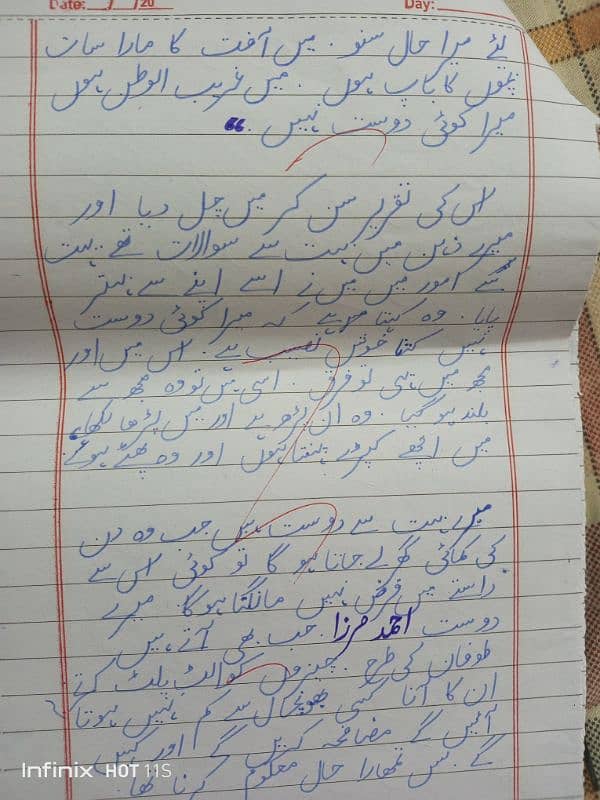 Date: / /20 Day:
لئے میرا حال سنو. میں آفت کا مارا سات
بچوں کا باپ ہوں. میں غریب الوطن ہوں
میرا کوئی دوست نہیں. “
اس کی تقریر سن کر میں چل دیا اور
میرے ذہن میں بہت سے سوالات تھے بہت
سے امور میں میں نے اسے اپنے سے بہتر
پایا. وہ کہتا ہے کہ میرا کوئی دوست
نہیں کتنا خوش نصیب ہے. اس میں اور
مجھ میں یہی تو فرق. اسی میں تو وہ مجھ سے
بلند ہو گیا. وہ ان پڑھ ہے اور میں پڑھا لکھا،
میں اچھے کپڑے پہنتا ہوں اور وہ پھٹے ہوئے.
میرے بہت سے دوست ہیں جب وہ دن
کی کمائی گھر لے جاتا ہو گا تو کوئی اس سے
راستے میں قرض نہیں مانگتا ہو گا میرے
دوست احمد مرزا جب بھی آتے ہیں
طوفان کی طرح چیزوں کو الٹ پلٹ کرتے
ان کا آنا کسی بھونچال سے کم نہیں ہوتا
آئیں گے مصافحہ کریں گے اور کہیں
گے بس تمھارا حال معلوم کرنا تھا.
Infinix HOT 11S